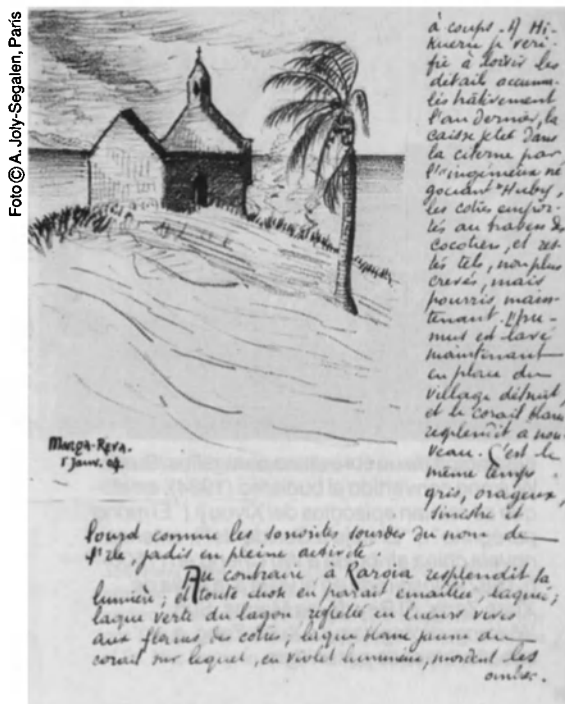 Foto © A. Joly-Segalen, París
à coups. A Hi-
kueru je véri-
fie à loisir les
détails accumu-
lés hâtivement
l'an dernier, la
caisse jetée dans
la citerne par
l'ingénieux né
gociant Huby,
les cotres empor-
tés au travers des
cocotiers, et res-
tés tels, non plus
crevés, mais
pourris, main-
tenant. L'hu-
mus est lavé
maintenant
en place du
village détruit,
et le corail blanc
resplendit à nou-
veau. C'est le
même temps
gris, orageux,
sinistre et
MANGA-REVA.
1 Janv. 04.
lourd comme les sonorités sourdes du nom de
l'île, jadis en pleine activité.
Au contraire, à Raroia resplendit la
lumière; et toute chose en paraît émaillée, laquée;
laque verte du lagon reflétée en lueurs vives
aux flancs des cotres, laque blanc jaune du
corail sur lequel, en violet lumineux, mordent les
ombres.